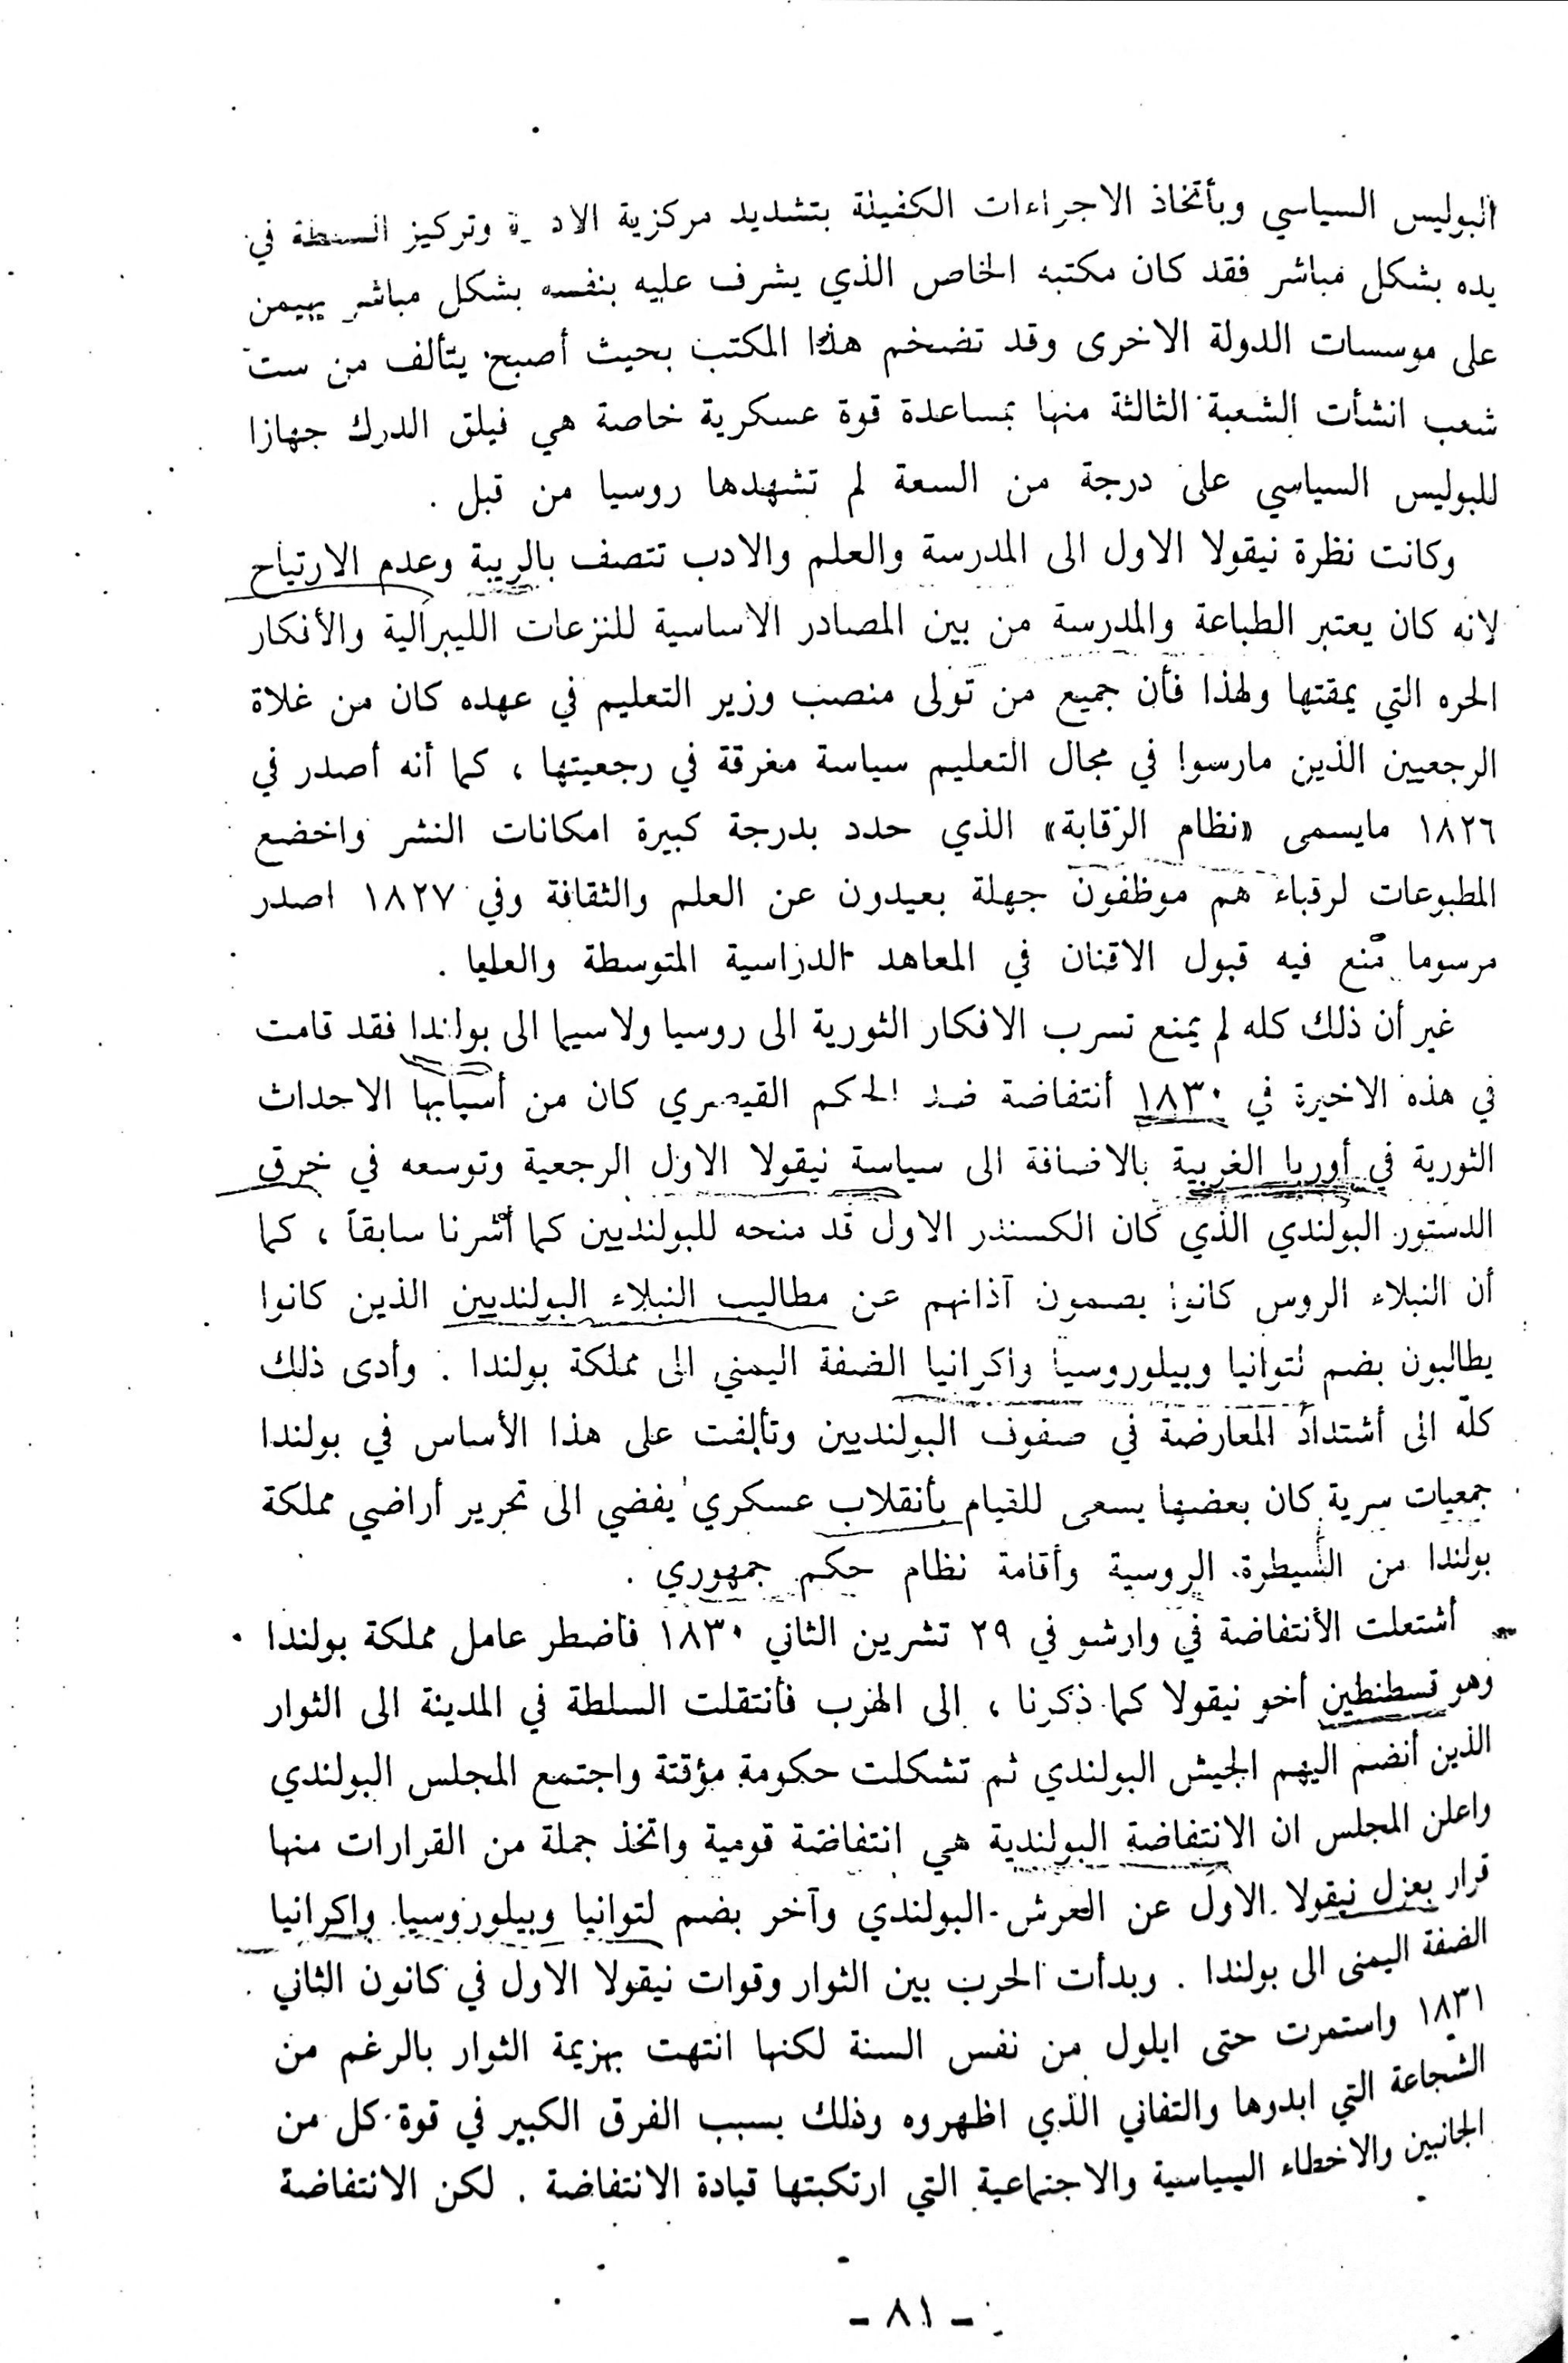 البوليس السياسي وبأتخاذ الاجراءات الكفيلة بتشديد مركزية وتركيز السلطة في
يده بشكل مباشر فقد كان مكتبه الخاص الذي يشرف عليه بنفسه بشكل مباشر يهيمن
على موسسات الدولة الاخرى وقد تضخم هذا المكتب بحيث أصبح يتألف من ست
شعب انشأت الشعبة الثالثة منها بمساعدة قوة عسكرية خاصة هي فيلق الدرك جهازا
للبوليس السياسي على درجة من السعة لم تشهدها روسيا من قبل .
وكانت نظرة نيقولا الاول الى المدرسة والعلم والادب تتصف بالريبة وعدم الارتياح
لانه كان يعتبر الطباعة والمدرسة من بين المصادر الاساسية للنزعات الليبرالية والأفكار
الحره التي يمقتها ولهذا فأن جميع من تولى منصب وزير التعليم في عهده كان من غلاة
الرجعيين الذين مارسوا في مجال التعليم سياسة مغرقة في رجعيتها ، كما أنه أصدر في
١٨٢٦ مايسمى «نظام الرقابة» الذي حدد بدرجة كبيرة امكانات النشر واخضع
المطبوعات لرقباء هم موظفون جهلة بعيدون عن العلم والثقافة وفي ١٨٢٧ اصدر
مرسوما منع فيه قبول الاقنان في المعاهد الدراسية المتوسطة والعليا .
غير أن ذلك كله لم يمنع تسرب الافكار الثورية الى روسيا ولاسيما الى بولندا فقد قامت
في هذه الاخيرة في ١٨٣٠ أنتفاضة ضد الحكم القيصري كان من أسبابها الاحداث
الثورية في أوربا الغربية بالاضافة الى سياسة نيقولا الاول الرجعية وتوسعه في خرق
الدستور البولندي الذي كان الكسندر الاول قد منحه للبولنديين كما أشرنا سابقاً ، كما
أن النبلاء الروس كانوا يصمون آذانهم عن مطاليب النبلاء البولنديين الذين كانوا
يطالبون بضم لتوانيا وبيلوروسيا واكرانيا الضفة اليمني الى مملكة بولندا . وأدى ذلك
كلّه الى أشتداد المعارضة في صفوف البولنديين وتألفت على هذا الأساس في بولندا
جمعيات سرية كان بعضها يسعى للقيام بأنقلاب عسكري يفضي الى تحرير أراضي مملكة
بولندا من السيطرة الروسية وأقامة نظام حكم جمهوري .
أشتعلت الأنتفاضة في وارشو في ٢٩ تشرين الثاني ١٨٣٠ فأضطر عامل مملكة بولندا
وهو قسطنطين أخو نيقولا كما ذكرنا ، الى الهرب فأنتقلت السلطة في المدينة الى الثوار
الذين أنضم اليهم الجيش البولندي ثم تشكلت حكومة مؤقتة واجتمع المجلس البولندي
واعلن المجلس ان الانتفاضة البولندية هي انتفاضة قومية واتخذ جملة من القرارات منها
قرار بعزل نيقولا الاول عن العرش البولندي وآخر بضم لتوانيا وبيلوروسيا واكرانيا
الضفة اليمنى الى بولندا . وبدأت الحرب بين الثوار وقوات نيقولا الاول في كانون الثاني
١٨٣١ واستمرت حتى ايلول من نفس السنة لكنها انتهت بهزيمة الثوار بالرغم من
الشجاعة التي ابدوها والتفاني الذي اظهروه وذلك بسبب الفرق الكبير في قوة كل من
الجانبين والاخطاء السياسية والاجتماعية التي ارتكبتها قيادة الانتفاضة . لكن الانتفاضة
- ٨١ -